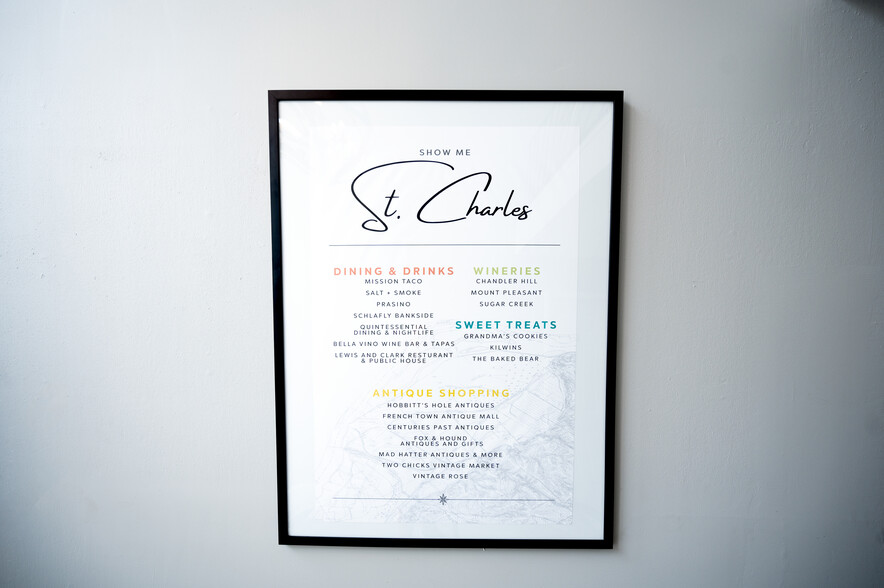 SHOW ME
St. Charles
DINING & DRINKS
MISSION TACO
SALT + SMOKE
PRASINO
SCHLAFLY BANKSIDE
QUINTESSENTIAL
DINING & NIGHTLIFE
BELLA VINO WINE BAR & TAPAS
LEWIS AND CLARK RESTURANT
& PUBLIC HOUSE
WINERIES
CHANDLER HILL
MOUNT PLEASANT
SUGAR CREEK
SWEET TREATS
GRANDMA'S COOKIES
KILWINS
THE BAKED BEAR
ANTIQUE SHOPPING
HOBBITT'S HOLE ANTIQUES
FRENCH TOWN ANTIQUE MALL
CENTURIES PAST ANTIQUES
FOX & HOUND
ANTIQUES AND GIFTS
MAD HATTER ANTIQUES & MORE
TWO CHICKS VINTAGE MARKET
VINTAGE ROSE